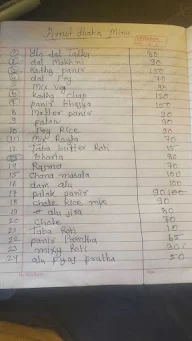 Amrut dhaba Menu
① dal Tadka 80
② dal Makhni 90
③ Kadhy panir 150
④ dal Fry 70
5 Mix veg 90
⑥ Kadhy chap 150
⑦ panir bhujya 160
8 Matter panir 90
9 palak 90
10 Fry Rice 90
11 Mix Rayta 70
12 Taba butter Roti 15
13 Bharta 80
14 Rajma 70
15 Chana masala 100
16 dam alu 100
17 palak panir
18 Chole Rice mix 90
19 alu jira 80
20 Chole 70
21 Taba Roti 10
22 panir Prantha 65
23 mixy Roti
24 alu pyaj pratha 50